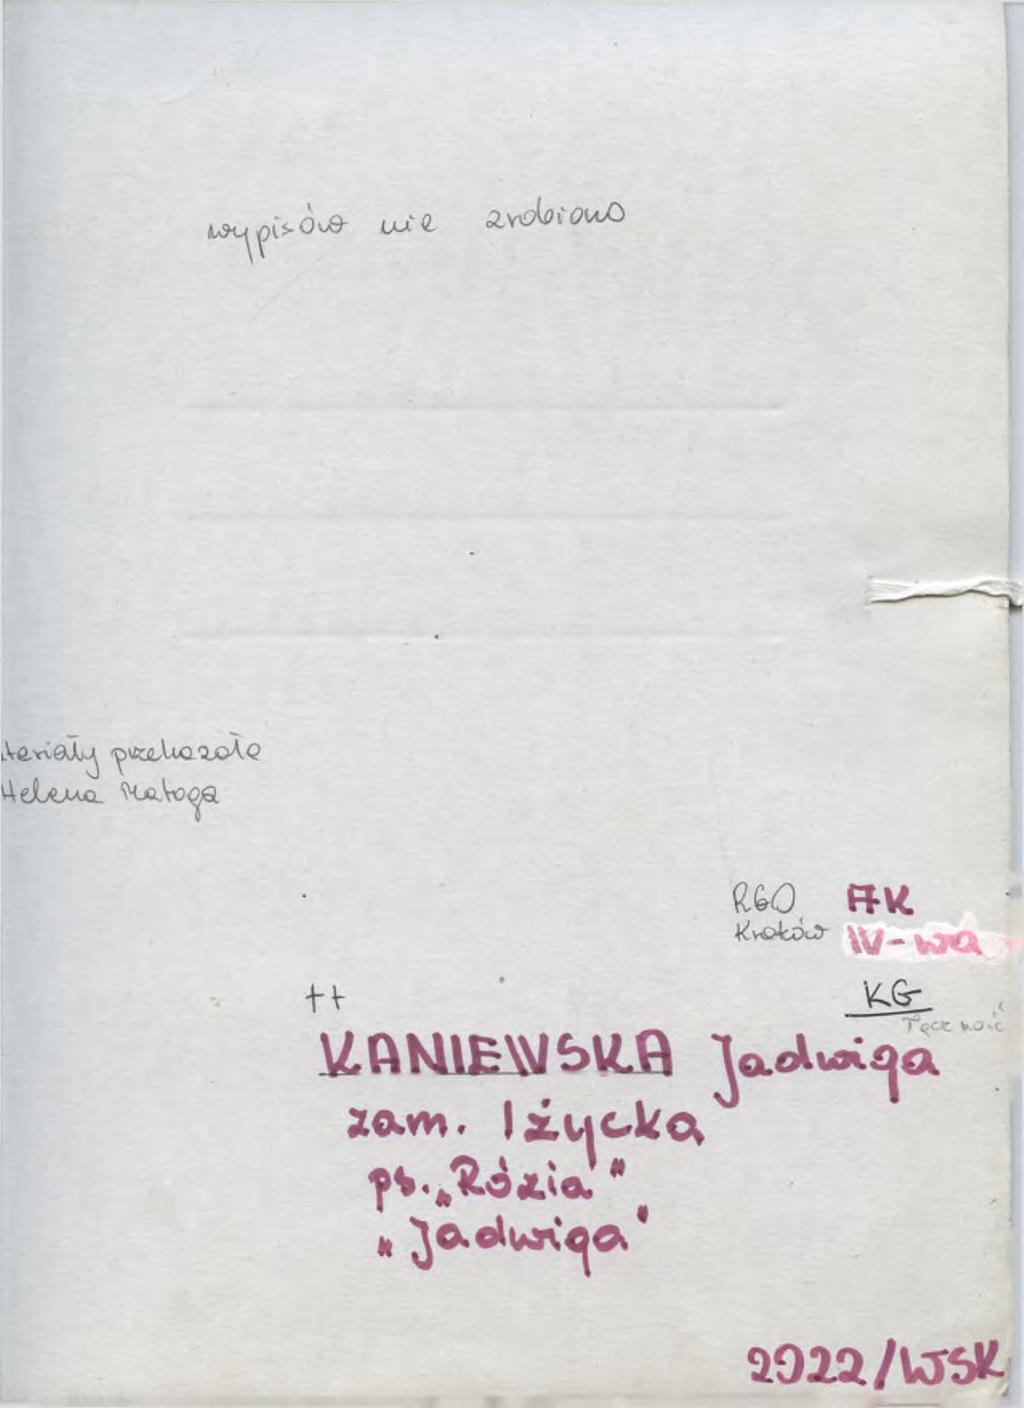 wypisów nie zrobiono
teriały przekazała
Helena Matoga
RGO AK
Kraków W-wa
++ KG
Łączność
KANIEWSKA Jadwiga
zam. Iżycka
ps. „Rózia"
„Jadwiga"
2922/WSK